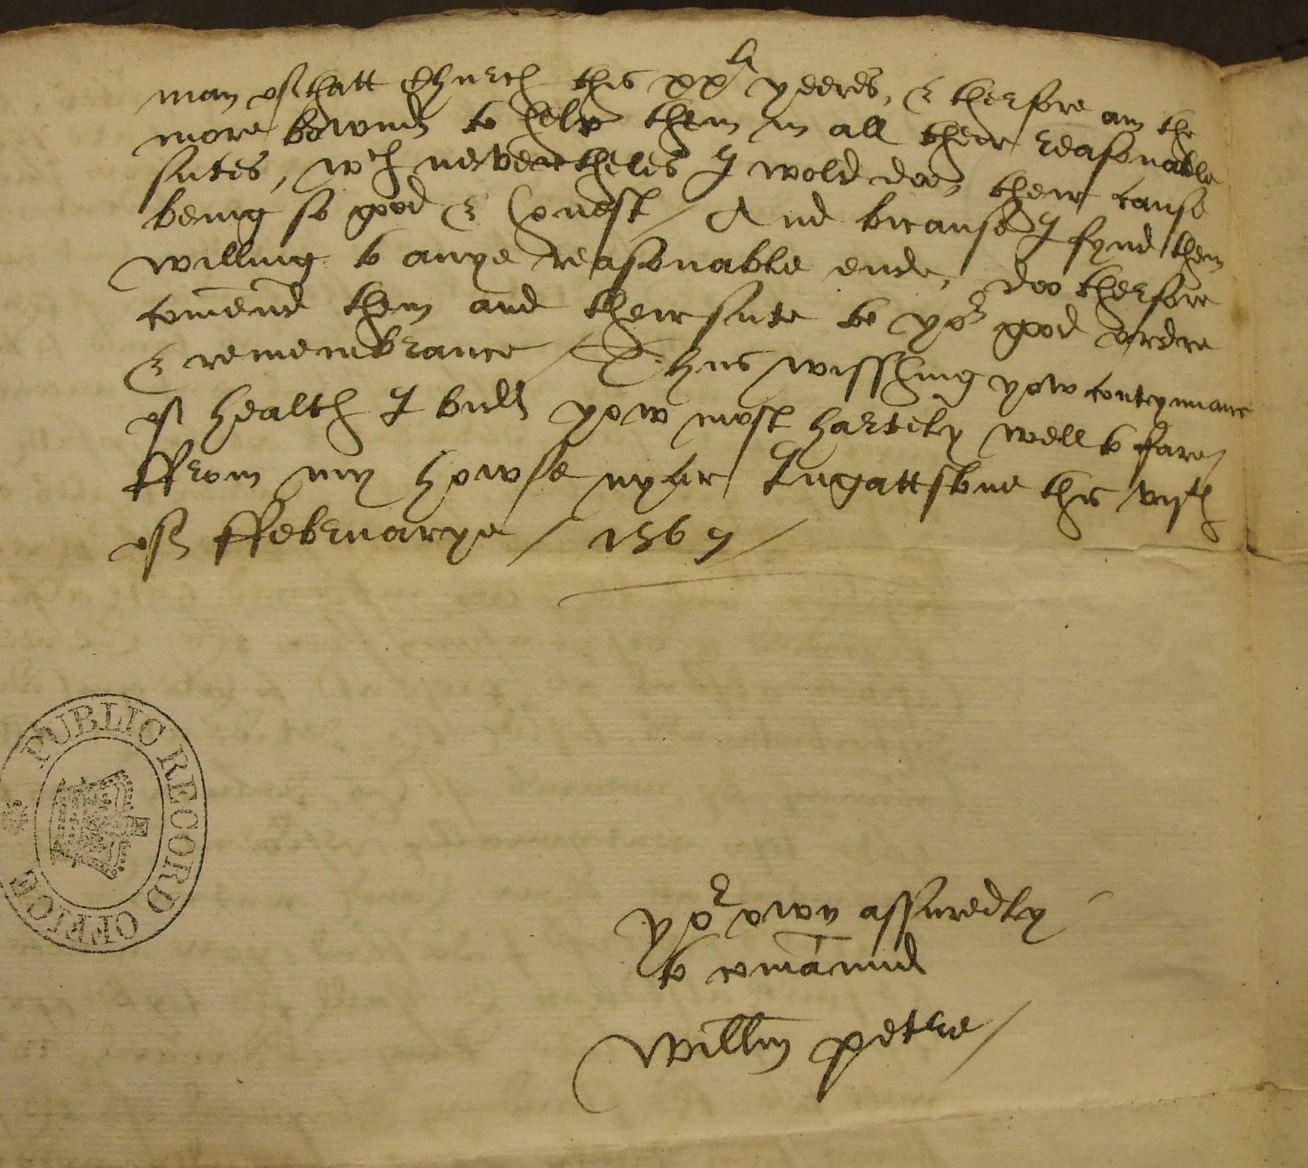 man of thatt Church this xxti yeeres, & therfore am the
more bownd to help them in all their reasonable
sutes, wch nevertheles I wold doo, their cause
being so good & honest / And bicause I fynd them
willing to anye reasonable ende, doo therfore
comend them and their sute to yor good ordre
& remembrance / Thus wisshing yow contynuance
of health I bidd yow most hartely well to fare
ffrom my howse nyghe Ingattstone this viith
of ffebruarye / 1567 /
yor own assuredly
to comaund
Willm petre /
PUBLIC RECORD OFFICE